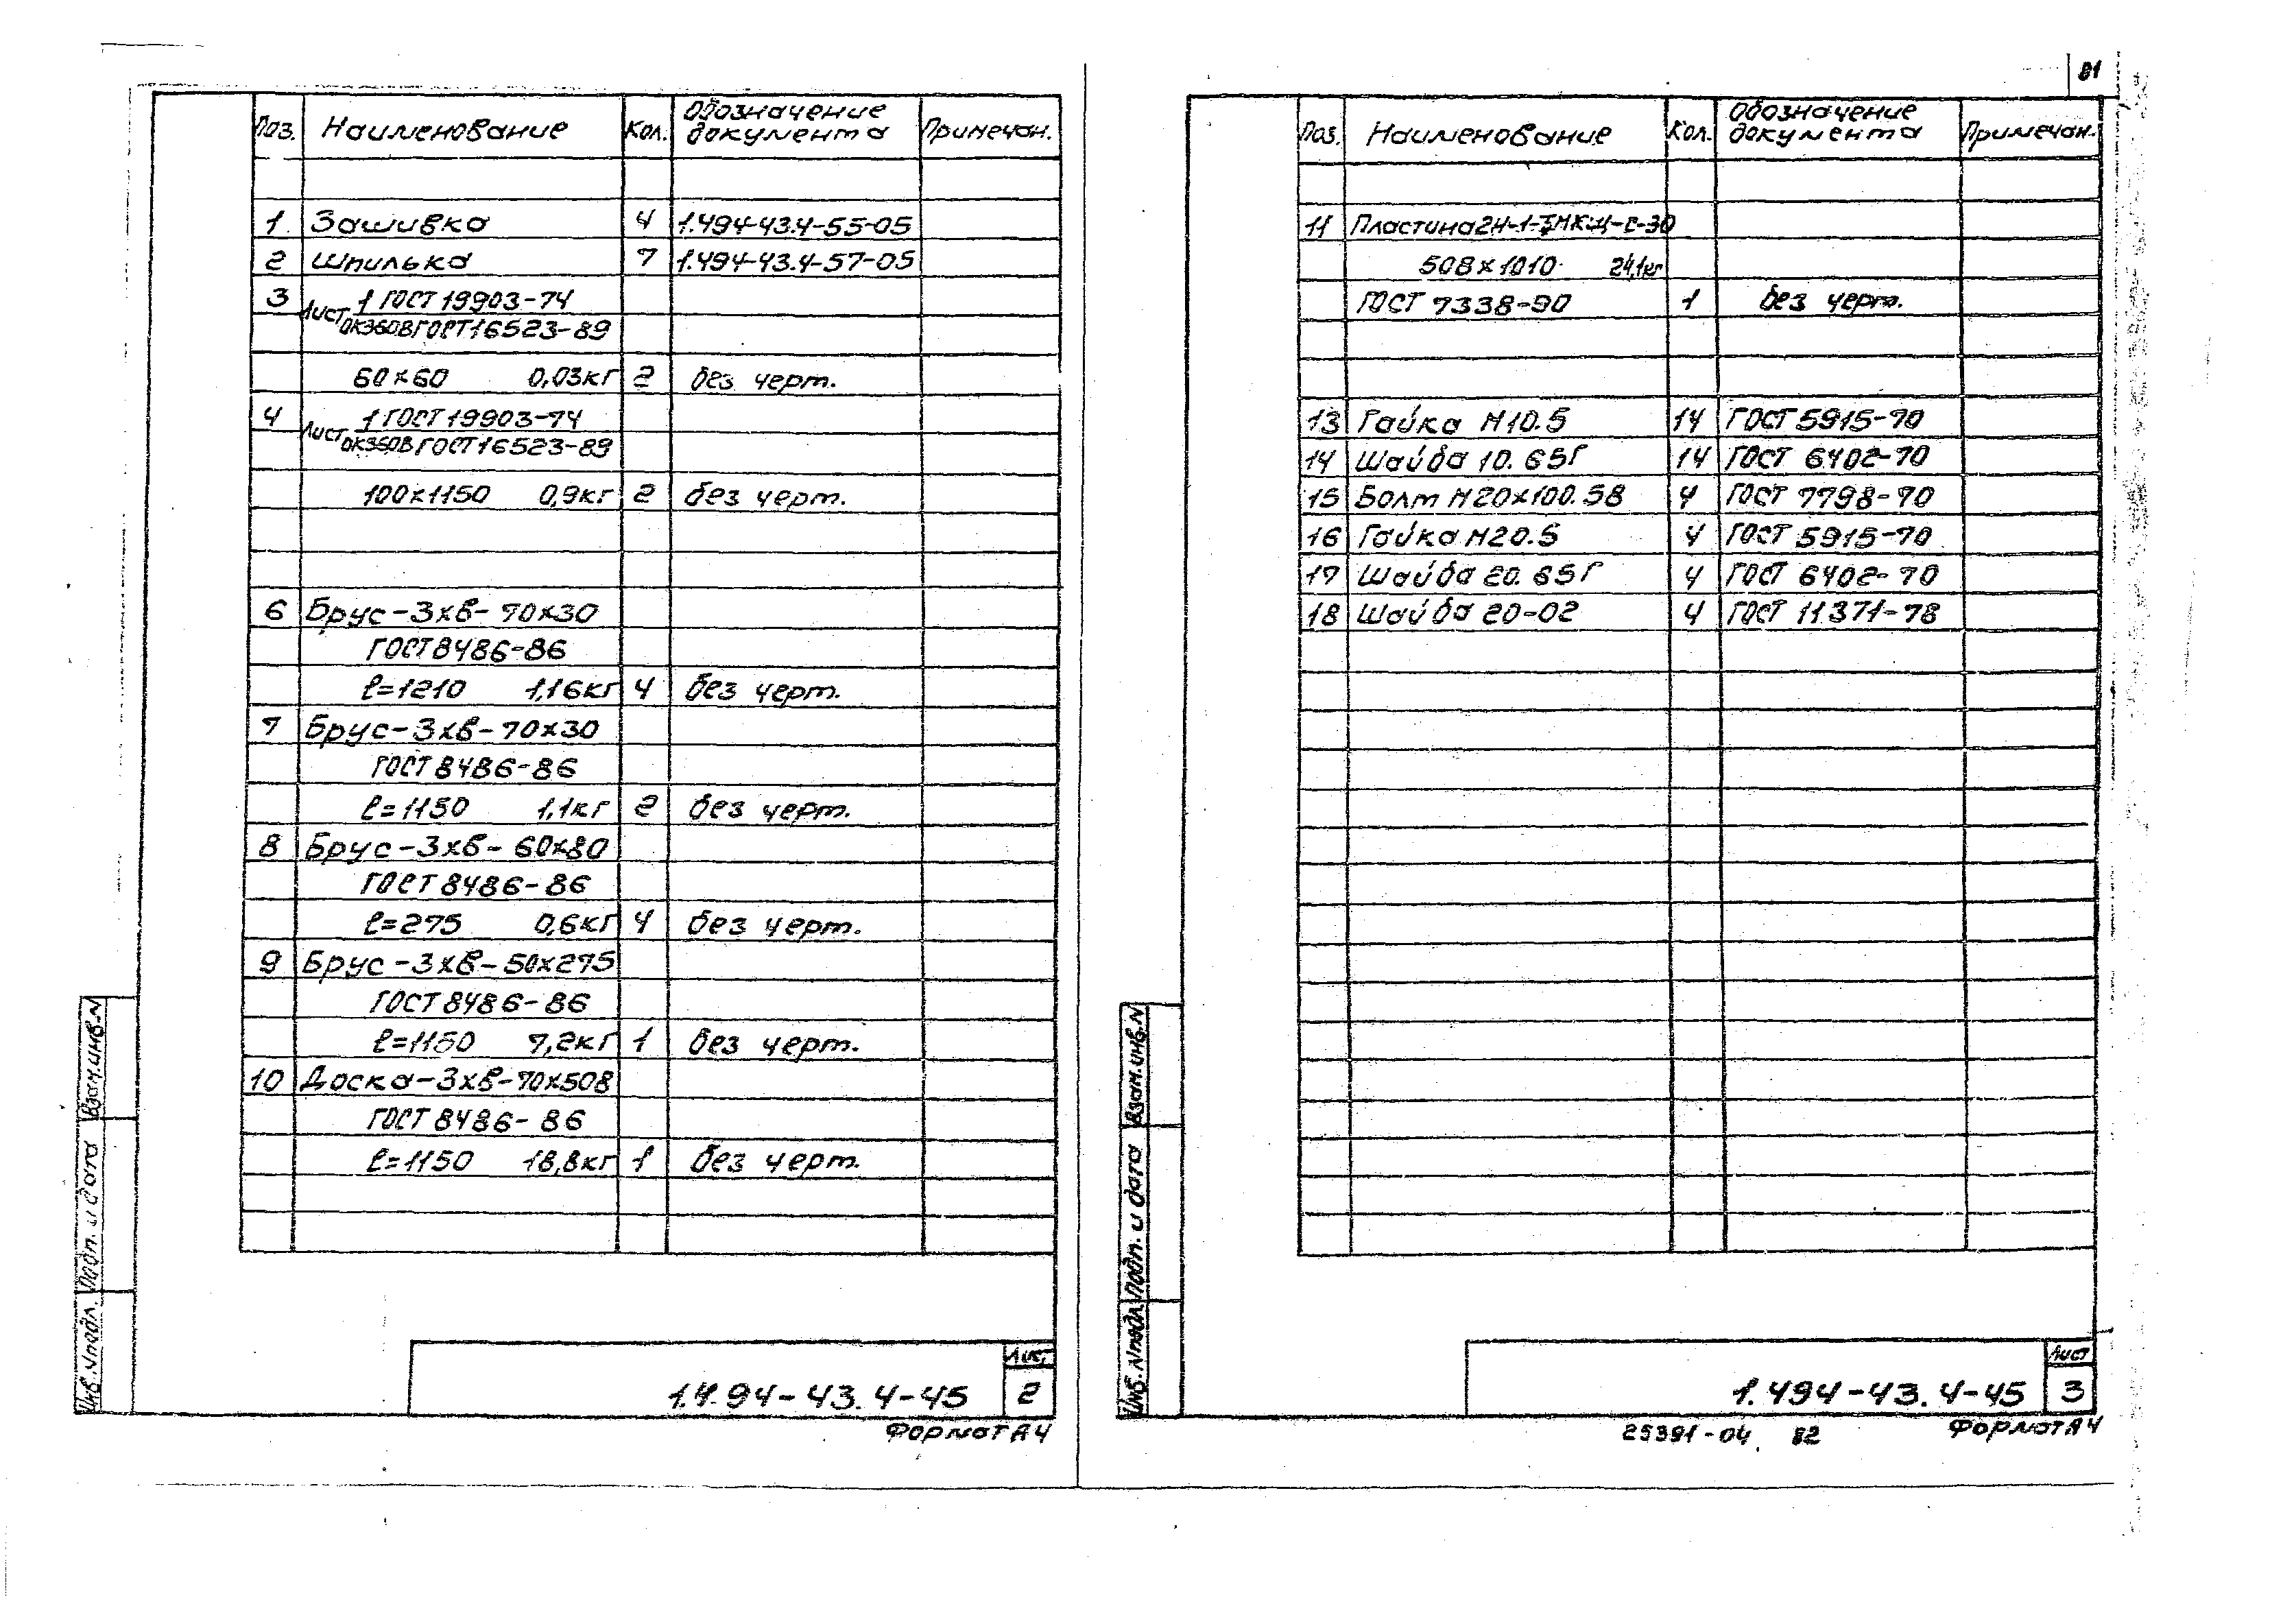 Поз. Наименование Кол. Обозначение документа Примечан.
1 Зашивка 4 1.494-43.4-55-05
2 Шпилька 7 1.494-43.4-57-05
3 Лист 1 ГОСТ 19903-74
ОК360В ГОСТ 16523-89
60×60 0,03кг 2 без черт.
4 Лист 1 ГОСТ 19903-74
ОК360В ГОСТ 16523-89
100×1150 0,9кг 2 без черт.
6 Брус-3хв-70×30
ГОСТ 8486-86
ℓ=1210 1,16кг 4 без черт.
7 Брус-3хв-70×30
ГОСТ 8486-86
ℓ=1150 1,1кг 2 без черт.
8 Брус-3хв-60×80
ГОСТ 8486-86
ℓ=275 0,6кг 4 без черт.
9 Брус-3хв-50×275
ГОСТ 8486-86
ℓ=1150 7,2кг 1 без черт.
10 Доска-3хв-70×508
ГОСТ 8486-86
ℓ=1150 18,8кг 1 без черт.
Инв. №подл. Подп. и дата Взам.инв.N
1.494-43.4-45
Лист
2
Формат А4
81
Поз. Наименование Кол. Обозначение документа Примечан.
11 Пластина 2Н-1-ТМКЩ-С-30
508×1010 24,1кг
ГОСТ 7338-90 1 без черт.
13 Гайка М10.5 14 ГОСТ 5915-70
14 Шайба 10.65Г 14 ГОСТ 6402-70
15 Болт М20×100.58 4 ГОСТ 7798-70
16 Гайка М20.5 4 ГОСТ 5915-70
17 Шайба 20.65Г 4 ГОСТ 6402-70
18 Шайба 20-02 4 ГОСТ 11371-78
Инв. №подл. Подп. и дата Взам.инв.N
1.494-43.4-45
Лист
3
25391-04 82 Формат А4